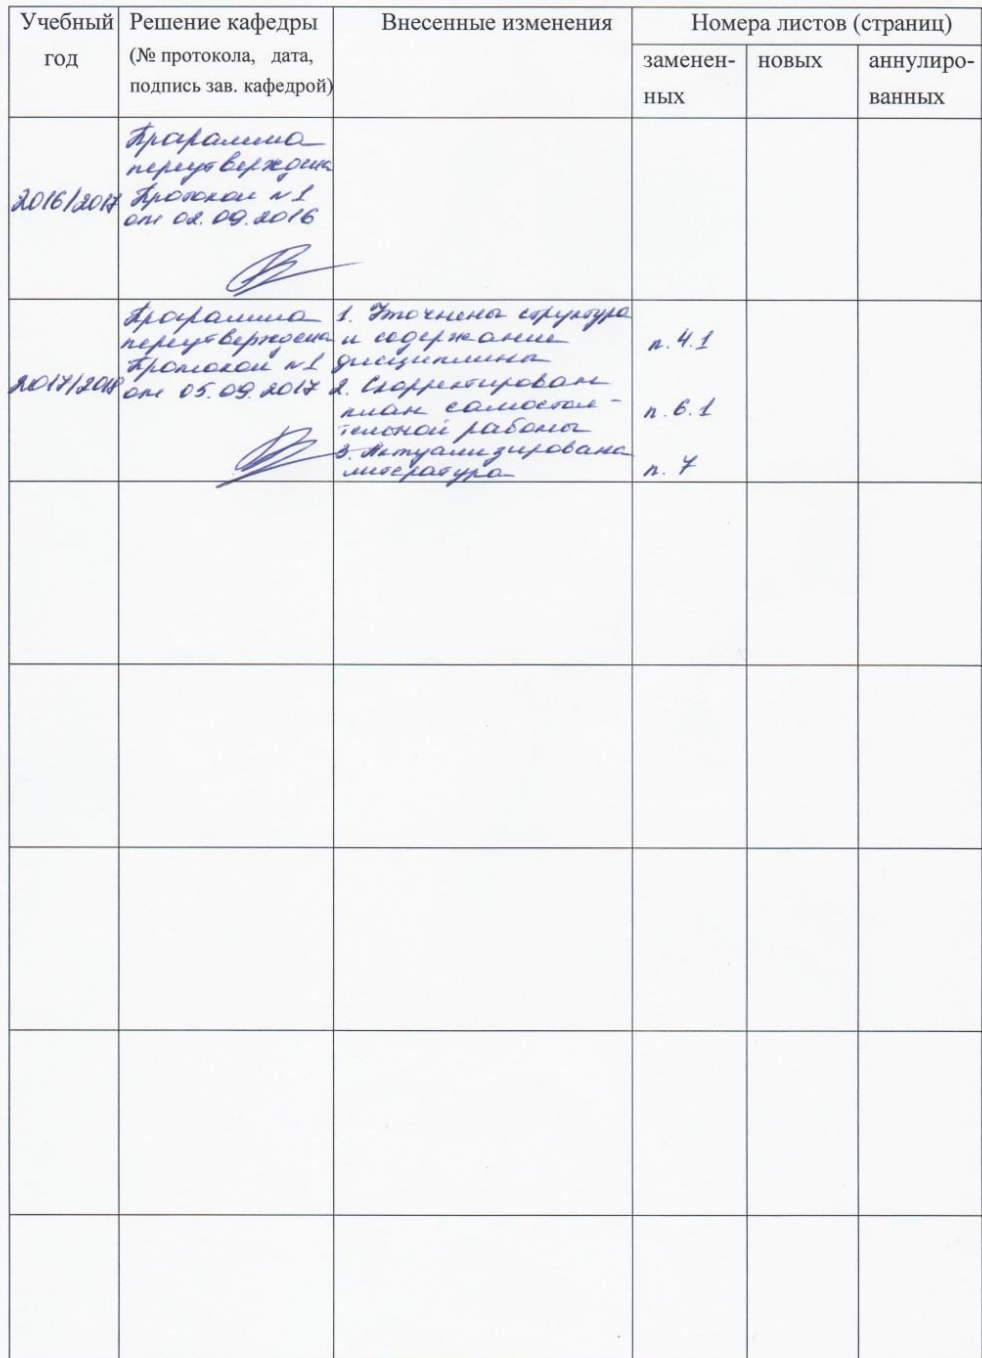 Учебный год
Решение кафедры
(№ протокола, дата,
подпись зав. кафедрой)
Внесенные изменения
Номера листов (страниц)
заменен-
ных
новых
аннулиро-
ванных
2016/2017
Программа
переутверждена
Протокол №1
от 02.09.2016
2017/2018
Программа
переутверждена
Протокол №1
от 05.09.2017
1. Уточнена структура
и содержание
дисциплины
2. Скорректирован
план самостоя-
тельной работы
3. Актуализирована
литература
п. 4.1
п. 6.1
п. 7